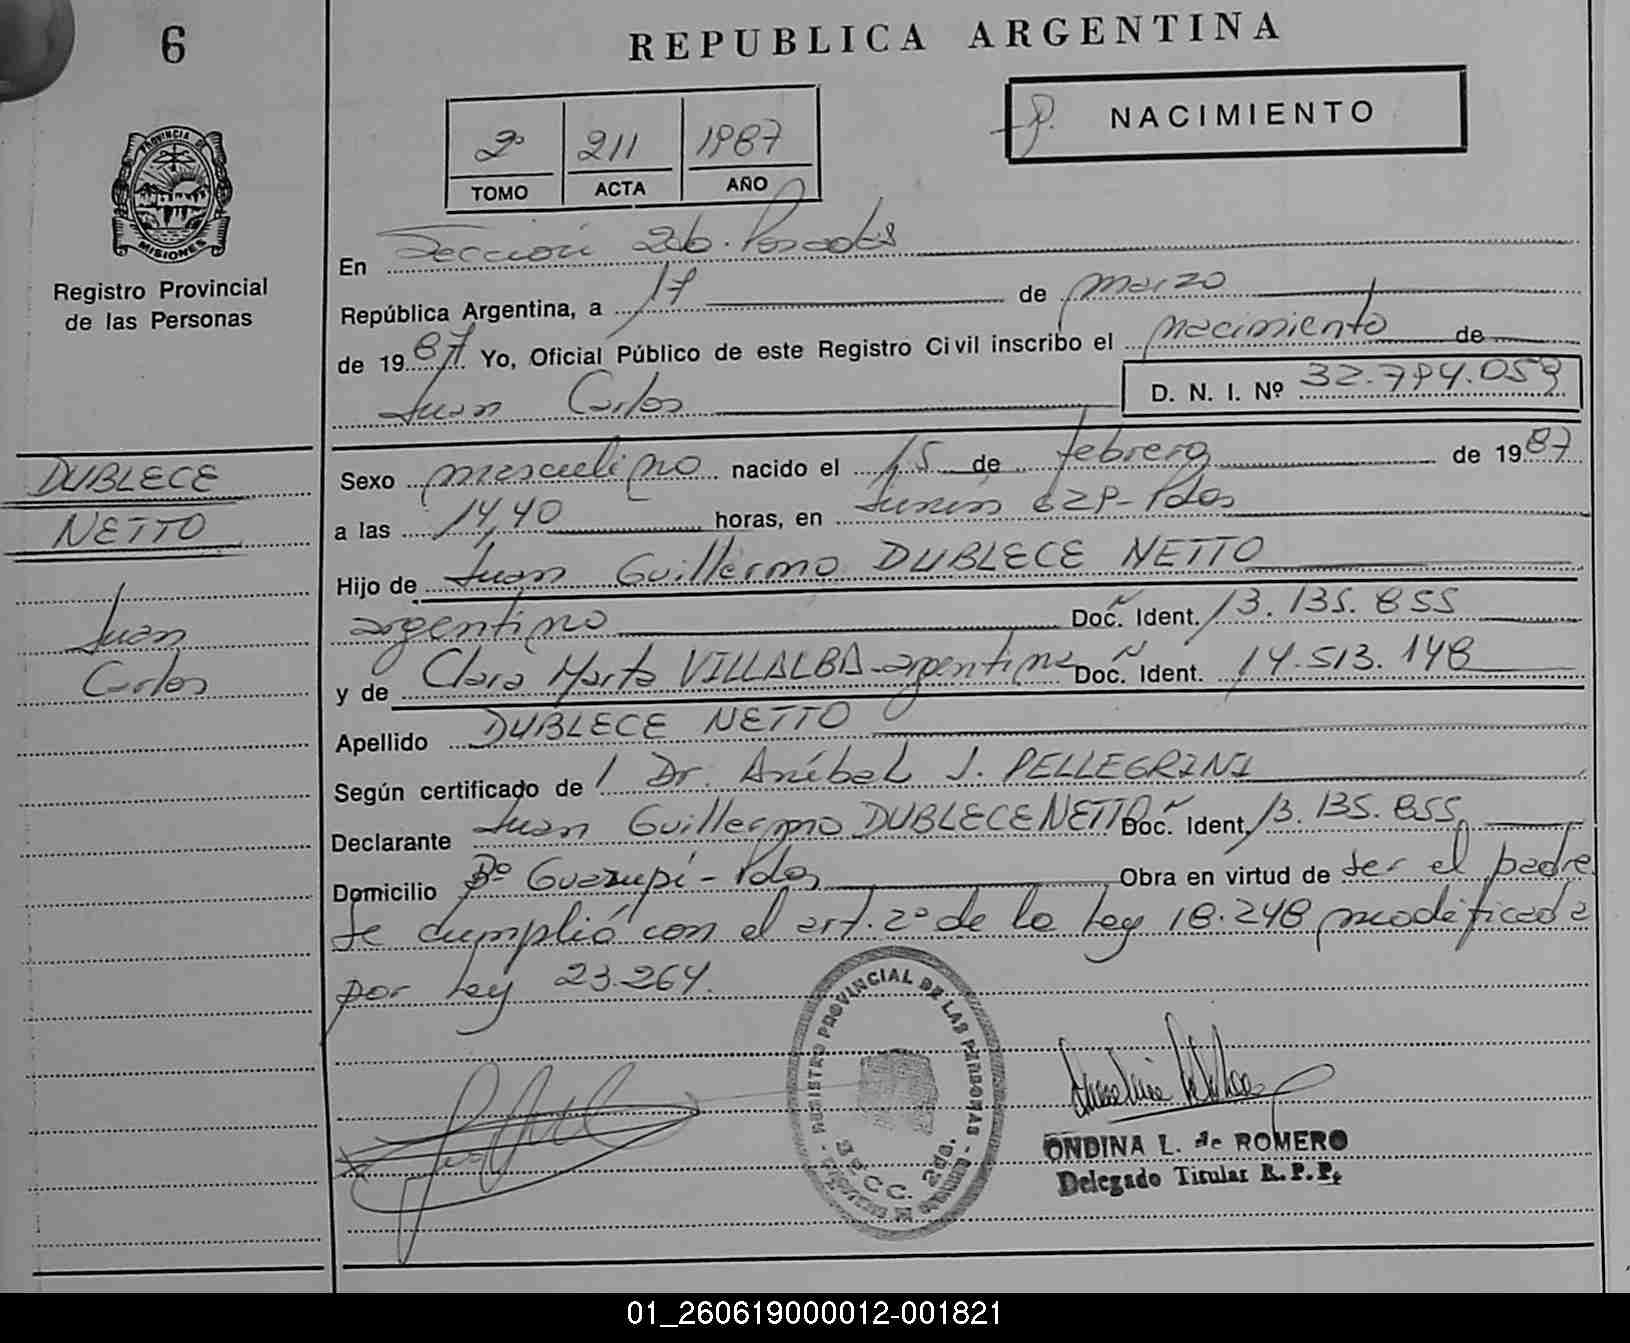 6
REPUBLICA ARGENTINA
2º 211 1987
TOMO ACTA AÑO
NACIMIENTO
PROVINCIA DE
MISIONES
Registro Provincial
de las Personas
En Sección 2da. Posadas
República Argentina, a 17 de marzo
de 1987 Yo, Oficial Público de este Registro Civil inscribo el nacimiento de
Juan Carlos D. N. I. Nº 32.794.059
DUBLECE
NETTO
Juan
Carlos
Sexo masculino nacido el 15 de febrero de 1987
a las 14,40 horas, en Junín 629-Pdas
Hijo de Juan Guillermo DUBLECE NETTO
argentino Doc. Ident. 13.135.855
y de Clara Marta VILLALBA-argentina Doc. Ident. 14.513.148
Apellido DUBLECE NETTO
Según certificado de / Dr. Aníbal J. PELLEGRINI
Declarante Juan Guillermo DUBLECE NETTO Doc. Ident. 13.135.855
Domicilio Bº Guazupí-Pdas Obra en virtud de ser el padre
Se cumplió con el art. 2º de la ley 18.248 modificada
por ley 23.264.
REGISTRO PROVINCIAL DE LAS PERSONAS
SECC. 2da.
ONDINA L. de ROMERO
Delegado Titular R.P.P.
01_260619000012-001821